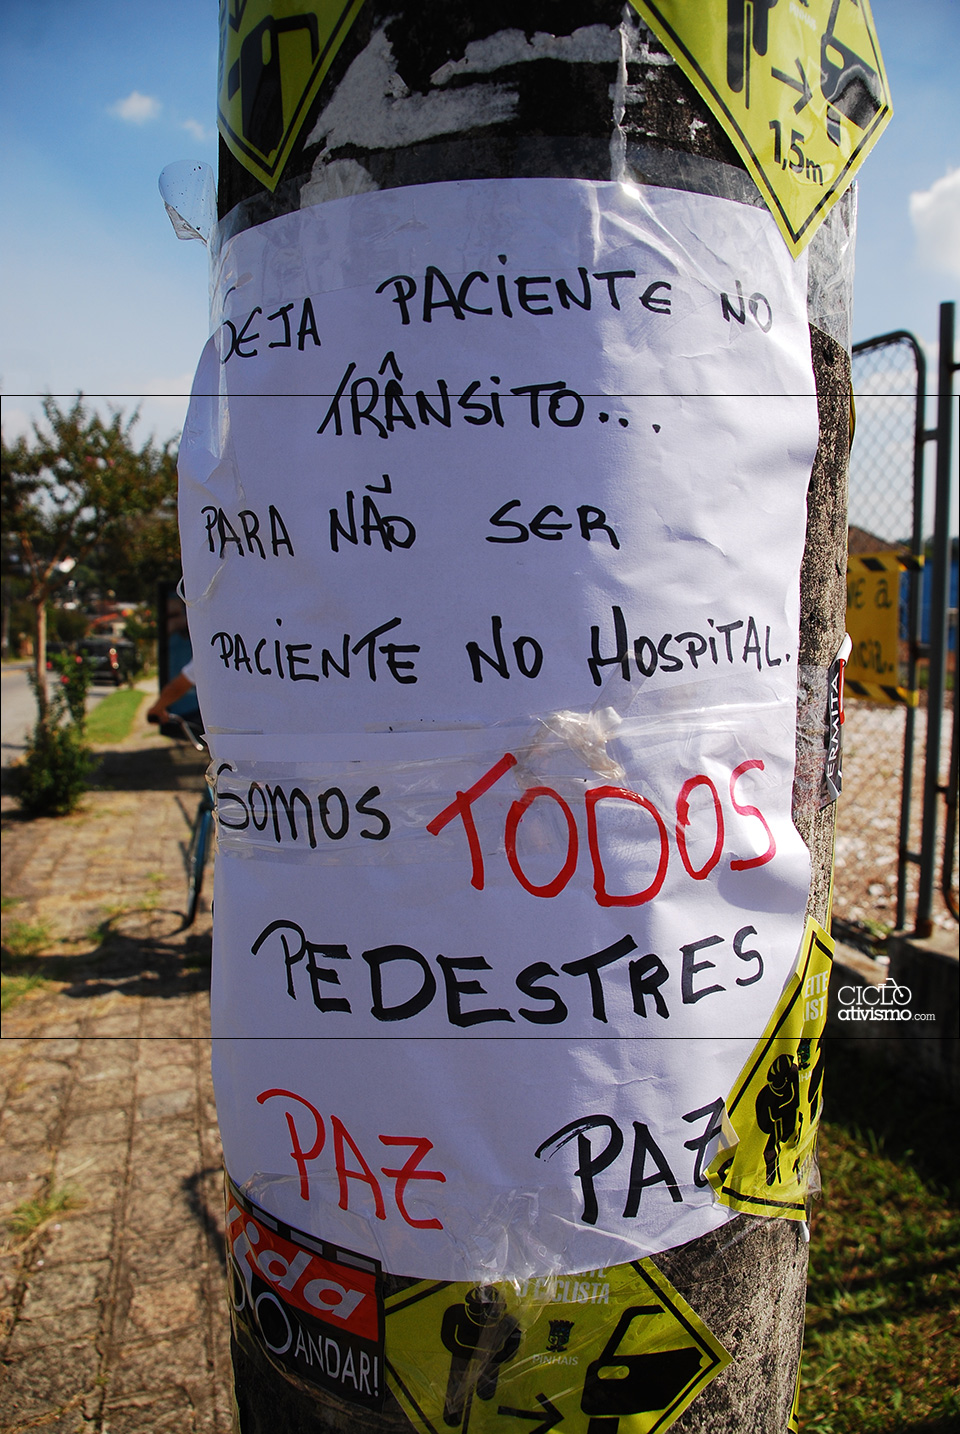 1,5m
SEJA PACIENTE NO
TRÂNSITO...
PARA NÃO SER
PACIENTE NO HOSPITAL.
SOMOS TODOS
PEDESTRES
PAZ PAZ
CICLO
ativismo.com
CICLISTA
PINHAIS
ANDAR!